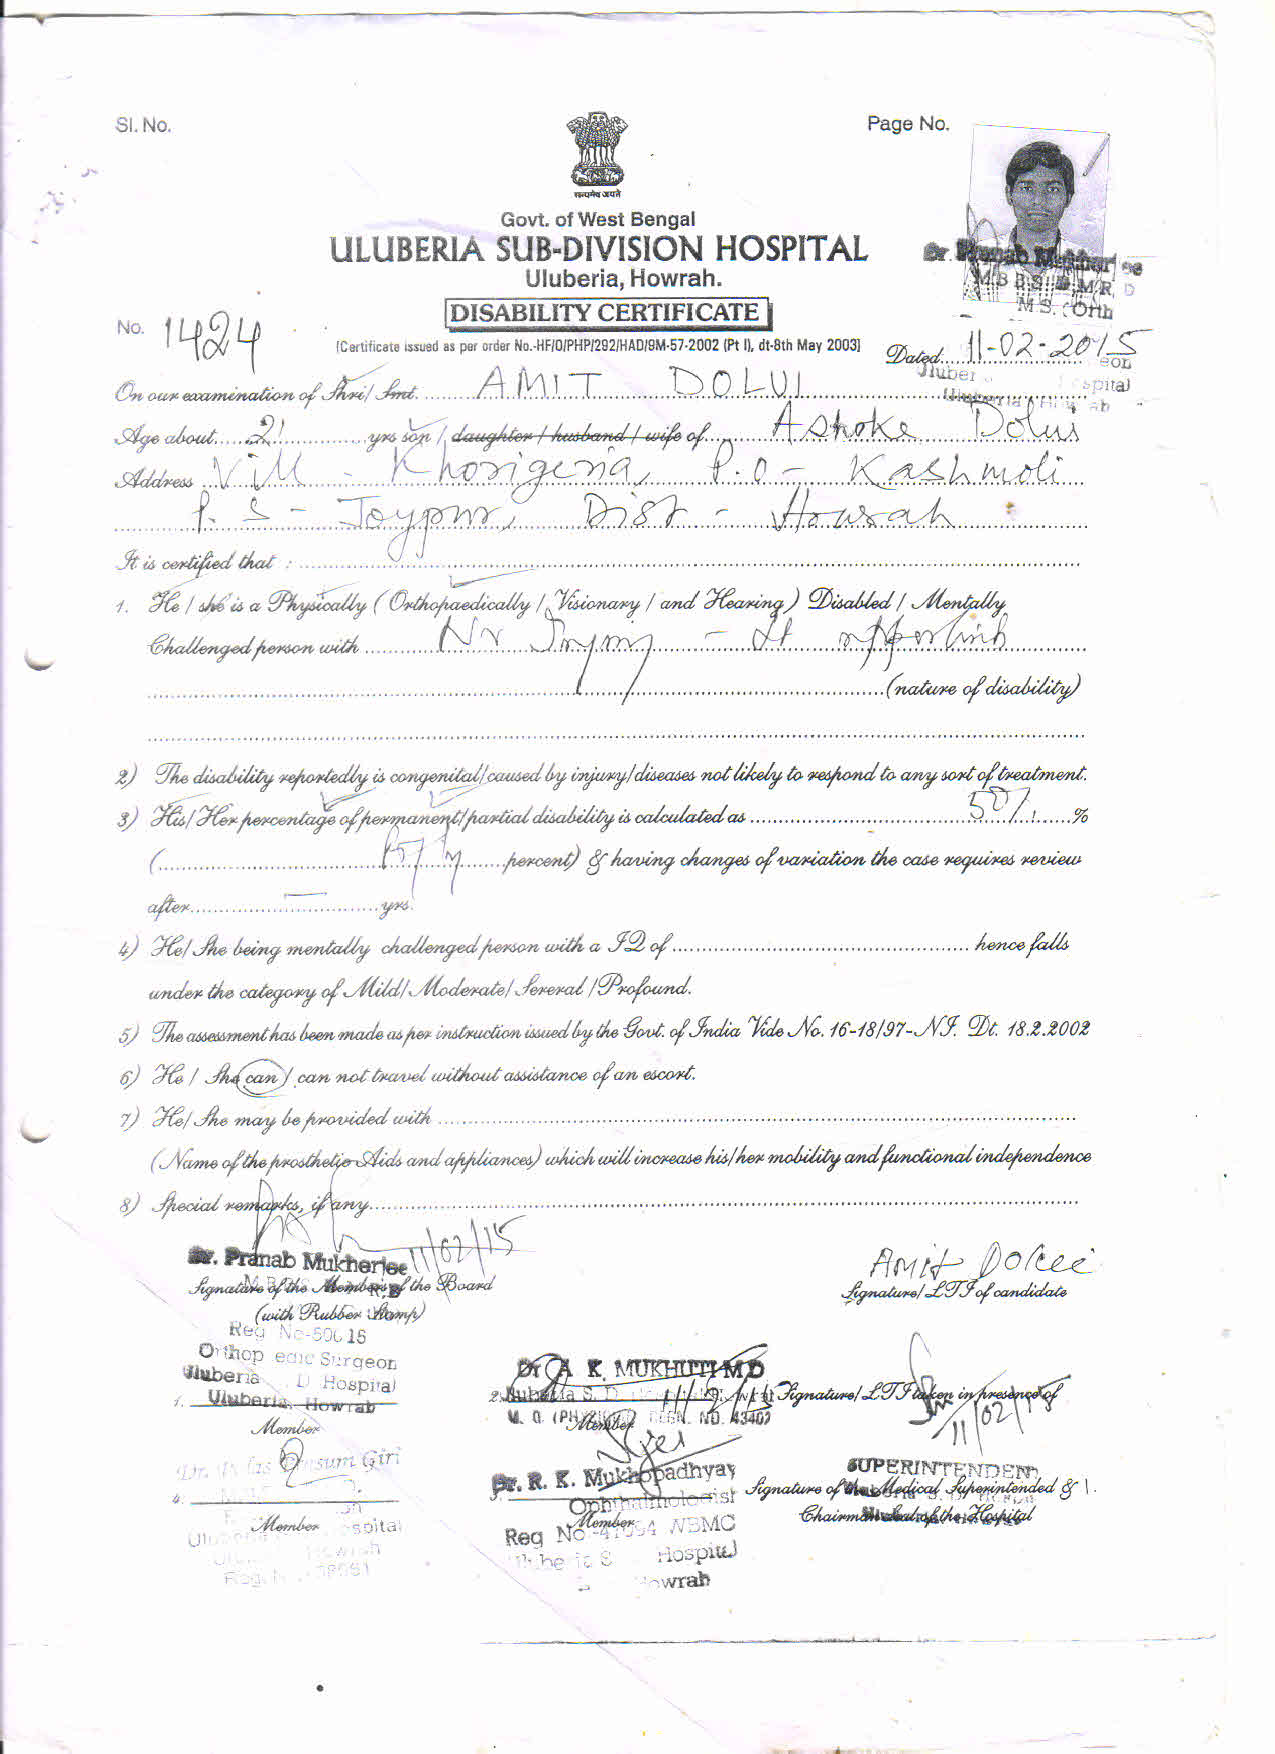 Sl. No.
Page No.
सत्यमेव जयते
Govt. of West Bengal
ULUBERIA SUB-DIVISION HOSPITAL
Uluberia, Howrah.
DISABILITY CERTIFICATE
No. 1424
(Certificate issued as per order No.-HF/O/PHP/292/HAD/9M-57-2002 (Pt I), dt-8th May 2003)
Dr. Pranab Mukherjee
M.B.B.S. D.M.R.D
M.S. (Orth
Dated 11-02-2015
On our examination of Shri/ Smt. AMIT DOLUI
Age about 21 yrs son / daughter / husband / wife of Ashoke Dolui
Address Vill - Khorigeria, P.O - Kashmoli
P.S - Joypur, Dist - Howrah
It is certified that :
1. He / she is a Physically (Orthopaedically / Visionary / and Hearing) Disabled / Mentally
Challenged person with
(nature of disability)
2) The disability reportedly is congenital/caused by injury/diseases not likely to respond to any sort of treatment.
3) His/ Her percentage of permanent/partial disability is calculated as 50% %
( percent) & having changes of variation the case requires review
after yrs.
4) He/ She being mentally challenged person with a IQ of hence falls
under the category of Mild/ Moderate/ Sereral /Profound.
5) The assessment has been made as per instruction issued by the Govt. of India Vide No. 16-18/97-NI. Dt. 18.2.2002
6) He / She can / can not travel without assistance of an escort.
7) He/ She may be provided with
(Name of the prosthetic Aids and appliances) which will increase his/her mobility and functional independence
8) Special remarks, if any
11/02/15
Dr. Pranab Mukherjee
Signature of the Members of the Board
(with Rubber Stamp)
Reg No-
Orthopaedic Surgeon
Uluberia S. D Hospital
1. Uluberia, Howrah
Member
Amit Dolui
Signature/ LTI of candidate
Dr A. K. MUKHUTI MD
2.
Member
Signature/ LTI taken in presence of
Giri
4.
Member
Dr. R. K. Mukhopadhyay
3. Ophthalmologist
Member
Reg No WBMC
Uluberia S Hospital
Howrah
SUPERINTENDENT
Signature of the Medical Superintended &
Chairman of the Hospital